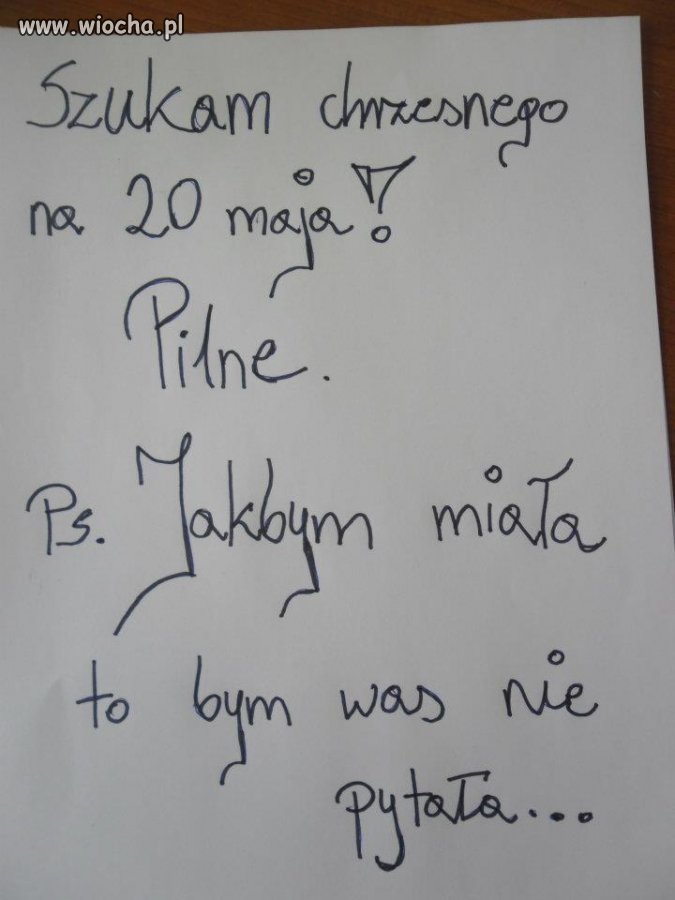 www.wiocha.pl
Szukam chrzesnego
na 20 maja!
Pilne.
Ps. Jakbym miała
to bym was nie
pytała...